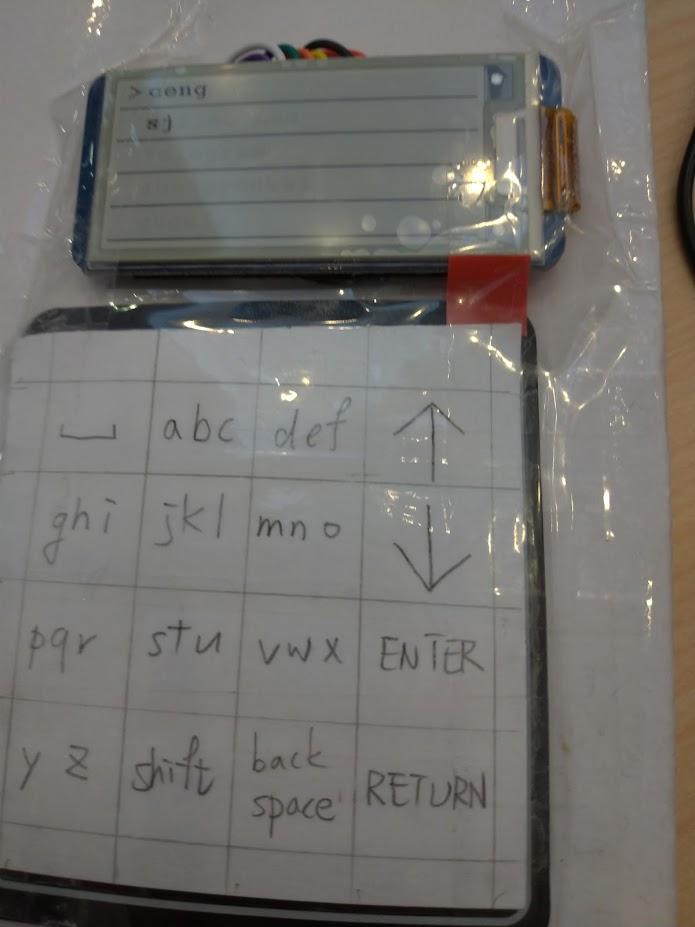 > ceng
sj
abc def
ghi jkl mno
pqr stu vwx ENTER
yz shift back space RETURN